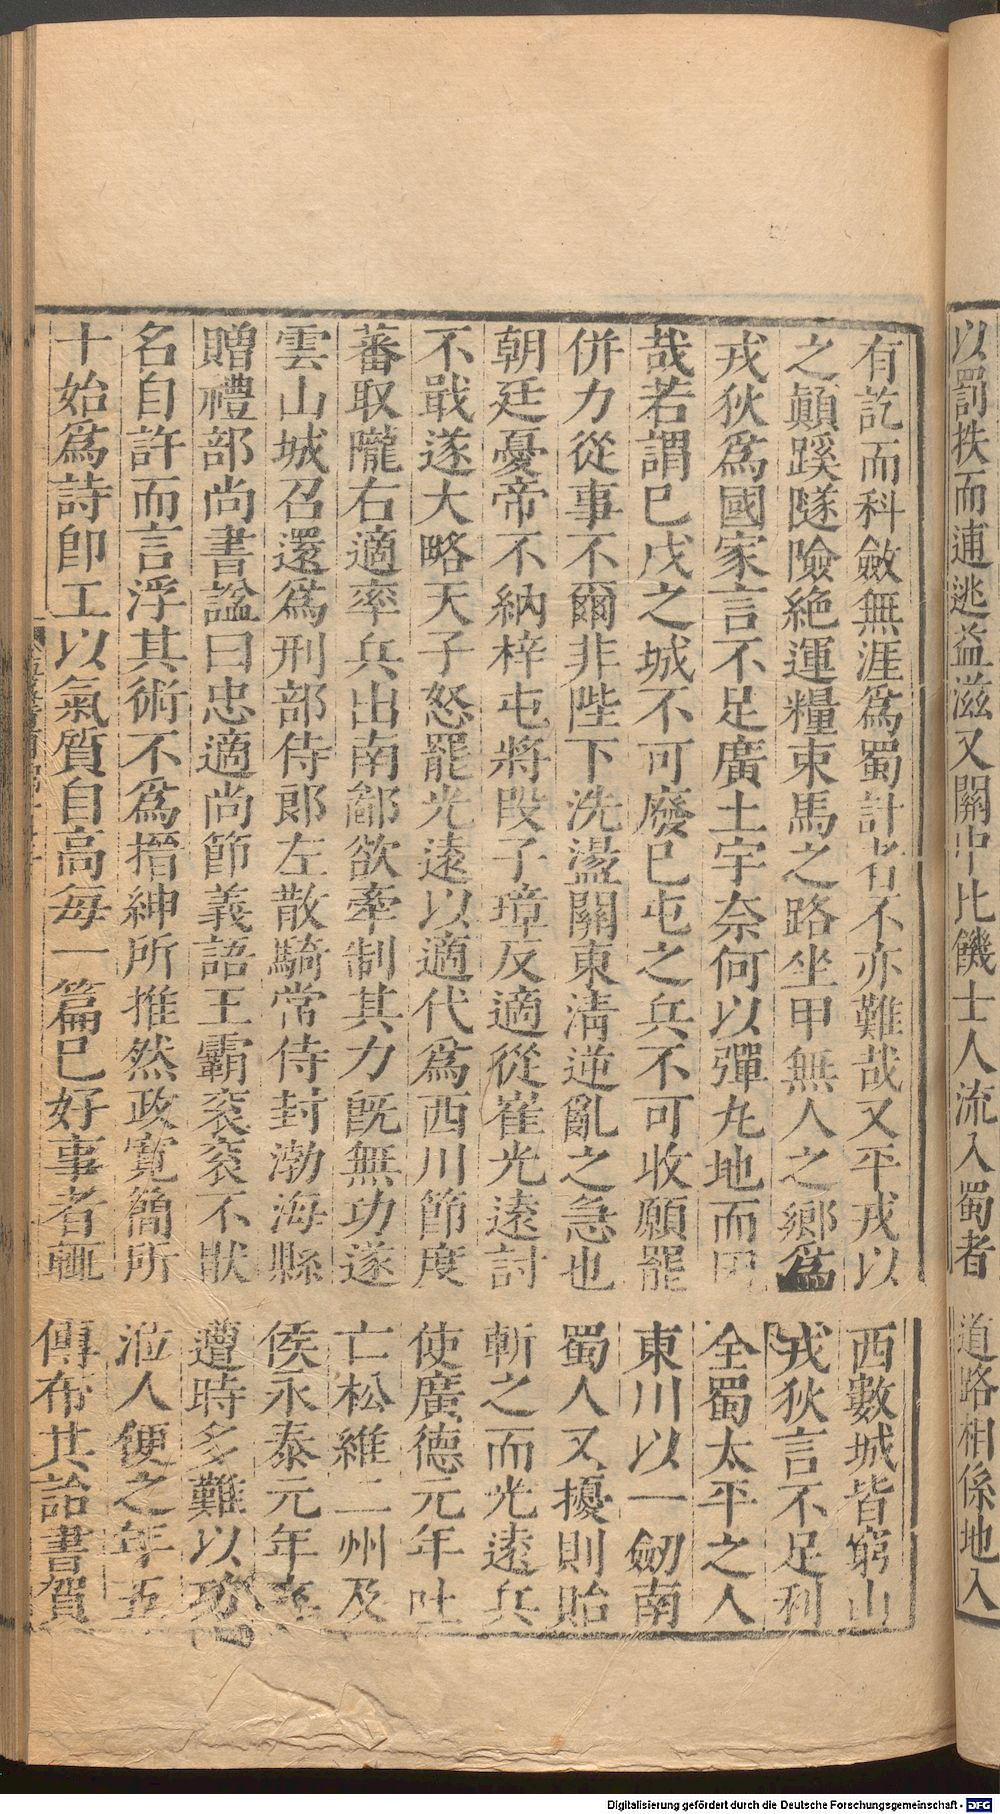 以罰抶而逋逃益滋又關中比饑士人流入蜀者道路相係地入
有訖而科斂無涯爲蜀計者不亦難哉又平戎以西數城皆窮山
之顛蹊隧險絶運糧束馬之路坐甲無人之鄉爲戎狄言不足利
戎狄爲國家言不足廣土宇奈何以彈丸地而困全蜀太平之人
哉若謂已戍之城不可廢已屯之兵不可收願罷東川以一劒南
併力從事不爾非陛下洗盪關東清逆亂之急也蜀人又擾則貽
朝廷憂帝不納梓屯將叚子璋反適從崔光遠討斬之而光遠兵
不戢遂大略天子怒罷光遠以適代爲西川節度使廣德元年吐
蕃取隴右適率兵出南鄙欲牽制其力旣無功遂亡松維二州及
雲山城召還爲刑部侍郎左散騎常侍封渤海縣侯永泰元年卒
贈禮部尚書謚曰忠適尚節義語王霸衮衮不猒遭時多難以功
名自許而言浮其術不爲搢紳所推然政寛簡所涖人便之年五
十始爲詩卽工以氣質自高每一篇已好事者輒傳布其詒書賀
Digitalisierung gefördert durch die Deutsche Forschungsgemeinschaft - DFG